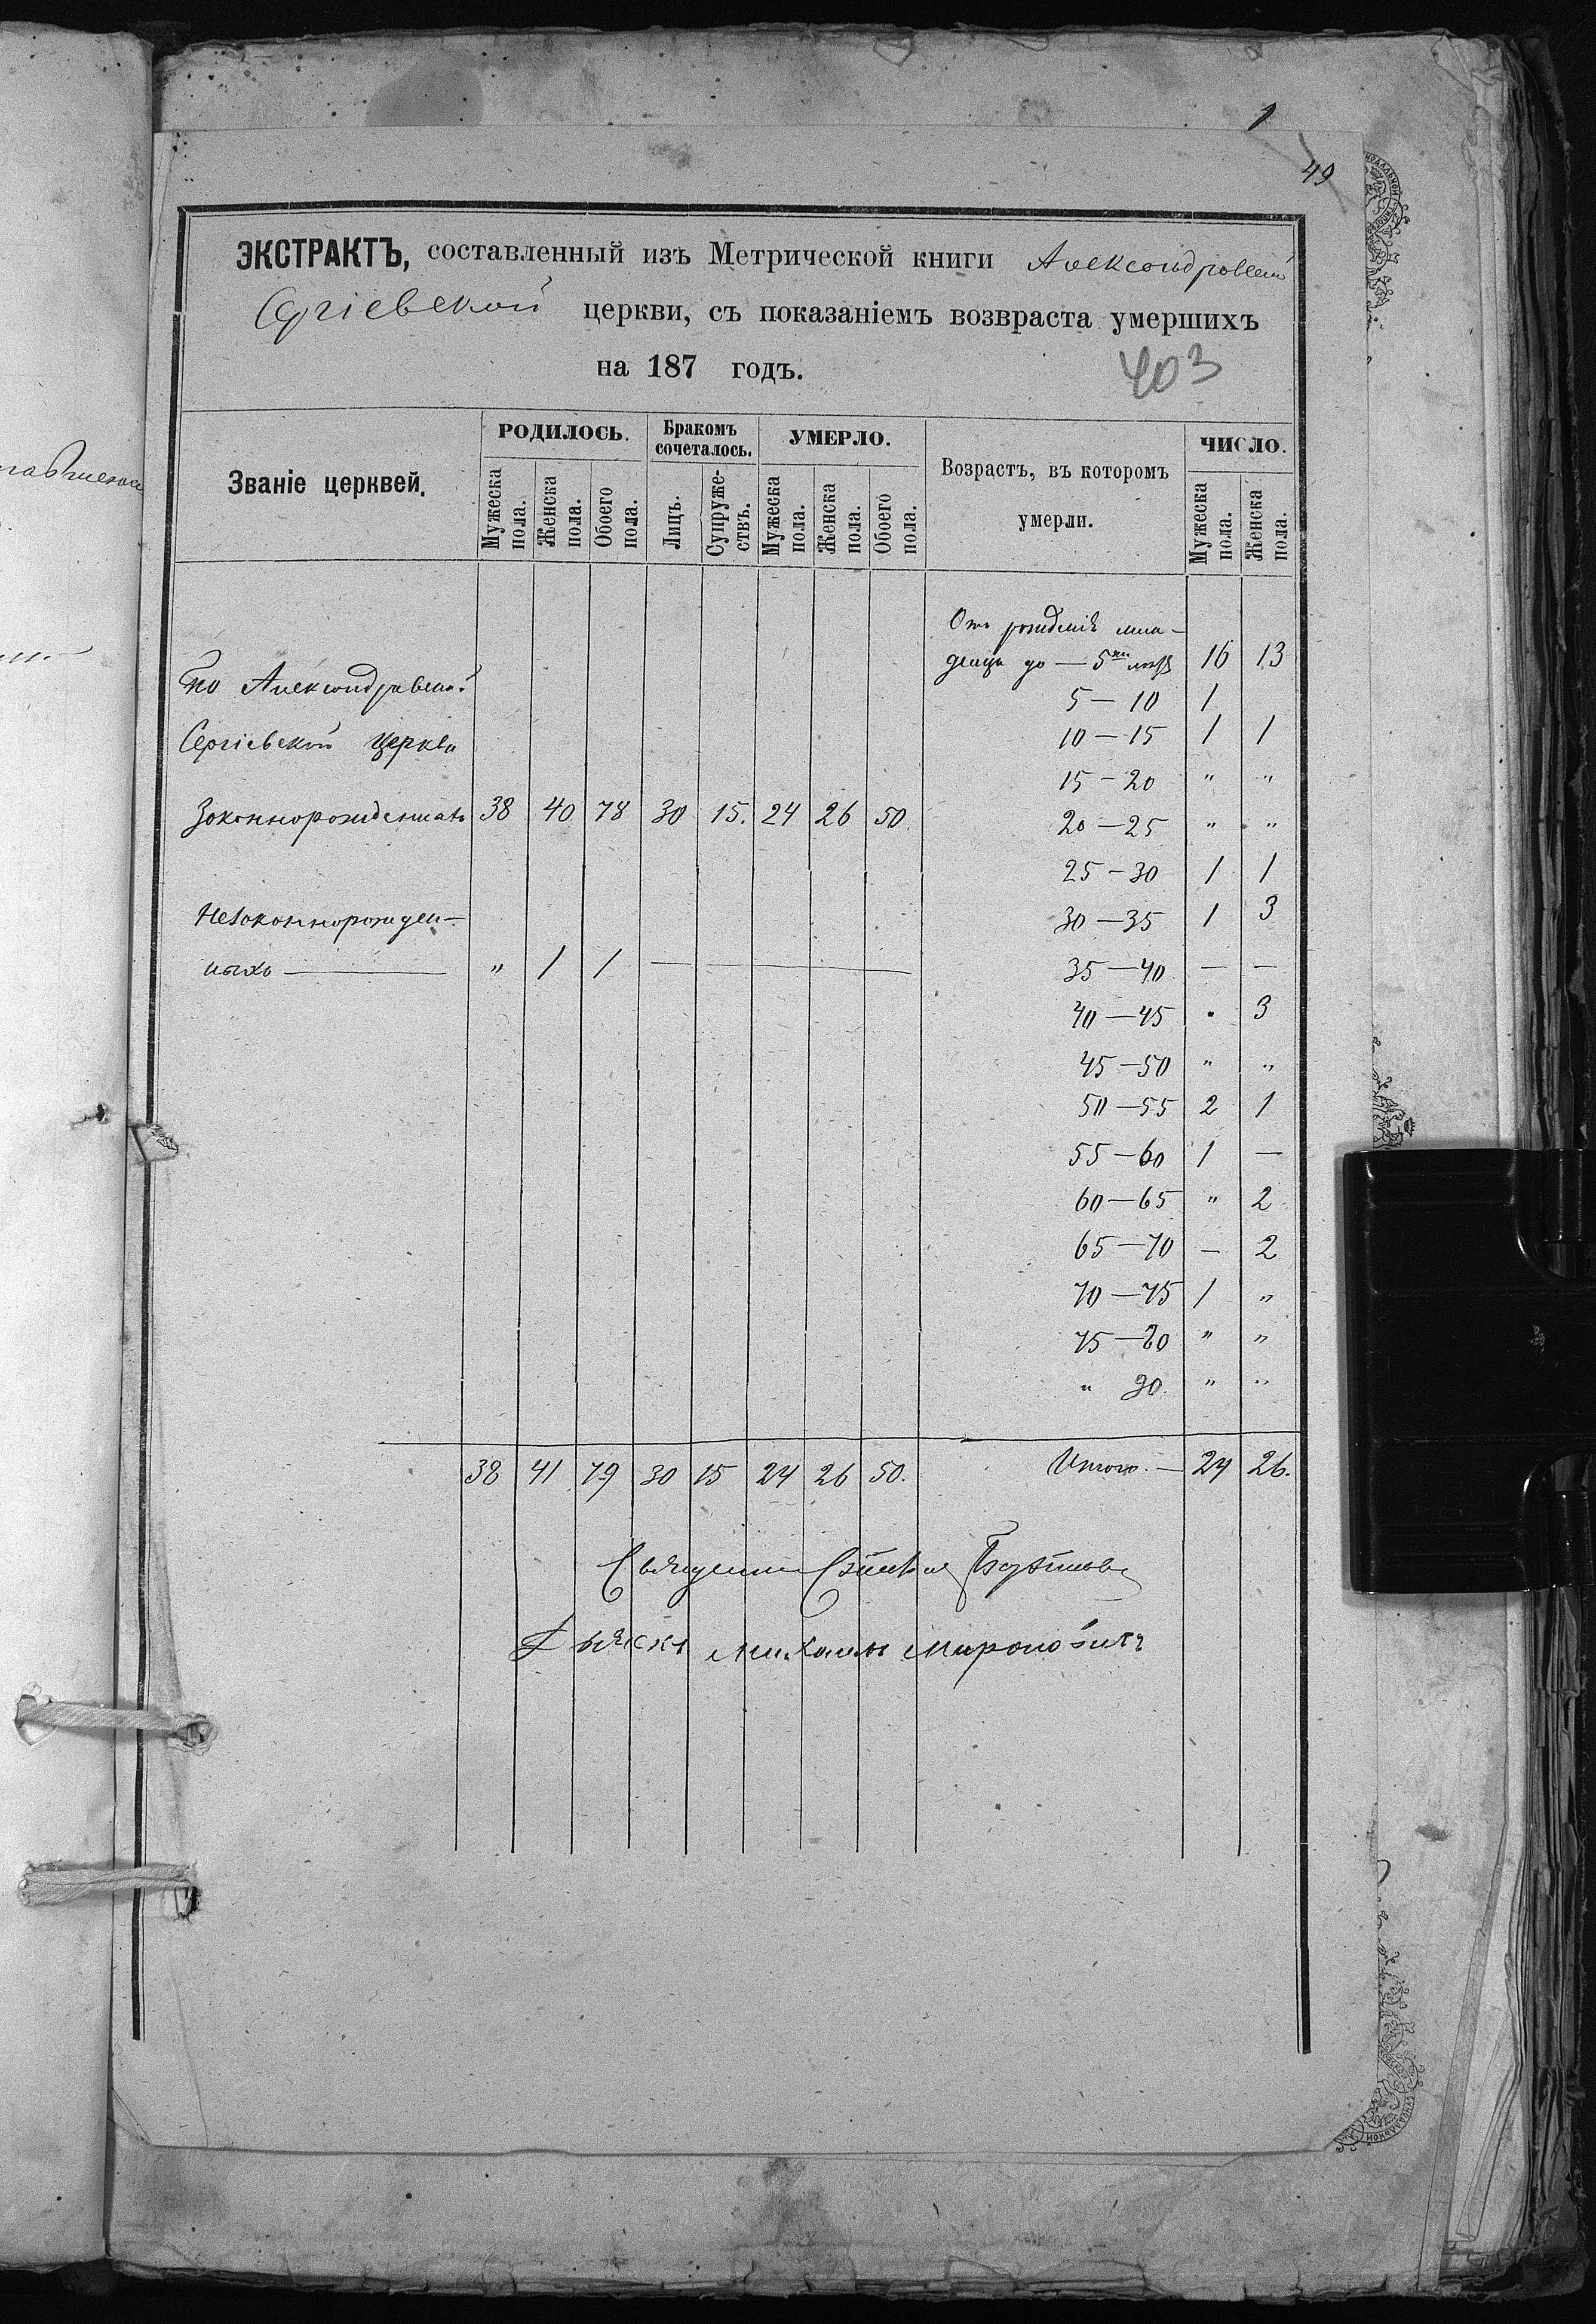 1
49
ЭКСТРАКТЪ, составленный изъ Метрической книги Александровской
Сергіевской церкви, съ показаніемъ возвраста умершихъ
на 187 годъ.
403
Званіе церквей.
РОДИЛОСЬ.
Мужеска пола.
Женска пола.
Обоего пола.
Бракомъ сочеталось.
Лицъ.
Супружествъ.
УМЕРЛО.
Мужеска пола.
Женска пола.
Обоего пола.
Возрастъ, въ которомъ
умерли.
ЧИСЛО.
Мужеска пола.
Женска пола.
Отъ рожденія мла-
денца до — 5ти лѣтъ 16 13
По Александровской
5 — 10 1
Сергіевской церкви
10 — 15 1 1
15 — 20 " "
Законнорожденныхъ 38 40 78 30 15. 24 26 50.
20 — 25 " "
25 — 30 1 1
Незаконнорожден-
30 — 35 1 3
ныхъ — " 1 1 —
35 — 40 — —
40 — 45 " 3
45 — 50 " "
50 — 55 2 1
55 — 60 1 —
60 — 65 " 2
65 — 70 — 2
70 — 75 1 "
75 — 80 " "
" 90. " "
38 41 79 30 15 24 26 50.
Итого. — 24 26.
Священникъ
Дьячекъ Михаилъ Мироновичъ